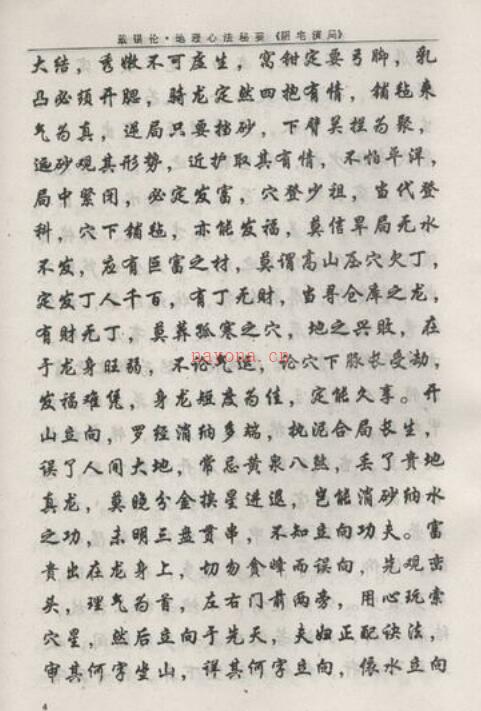 戴锡伦·地理心法秘要《阴宅演问》
大结，秀嫩不可虚生，窝钳定要弓脚，乳
凸必须开腮，骑龙定然四抱有情，铺毡来
气为真，逆局只要挡砂，下臂关捏为聚，
远砂观其形势，近护取其有情，不怕平洋，
局中紧闭，必定发富，穴登少祖，当代登
科，穴下铺毡，亦能发福，莫信旱局无水
不发，应有巨富之材，莫谓高山压穴欠丁，
定发丁人千百，有丁无财，当寻仓库之龙，
有财无丁，莫葬孤寒之穴，地之兴败，在
于龙身旺弱，不论气运，论穴下脉长受劫，
发福难凭，身龙短度为佳，定能久享。开
山立向，罗经消纳多端，执泥合局长生，
误了人间大地，常忌黄泉八煞，丢了贵地
真龙，莫晓分金换星进退，岂能消砂纳水
之功，未明三盘贯串，不知立向功夫。富
贵出在龙身上，切勿贪峰而误向，先观峦
头，理气为首，左右门前两旁，用心玩索
穴星，然后立向于先天，夫妇正配诀法，
审其何字坐山，详其何字立向，依水立向
4
nayona.cn